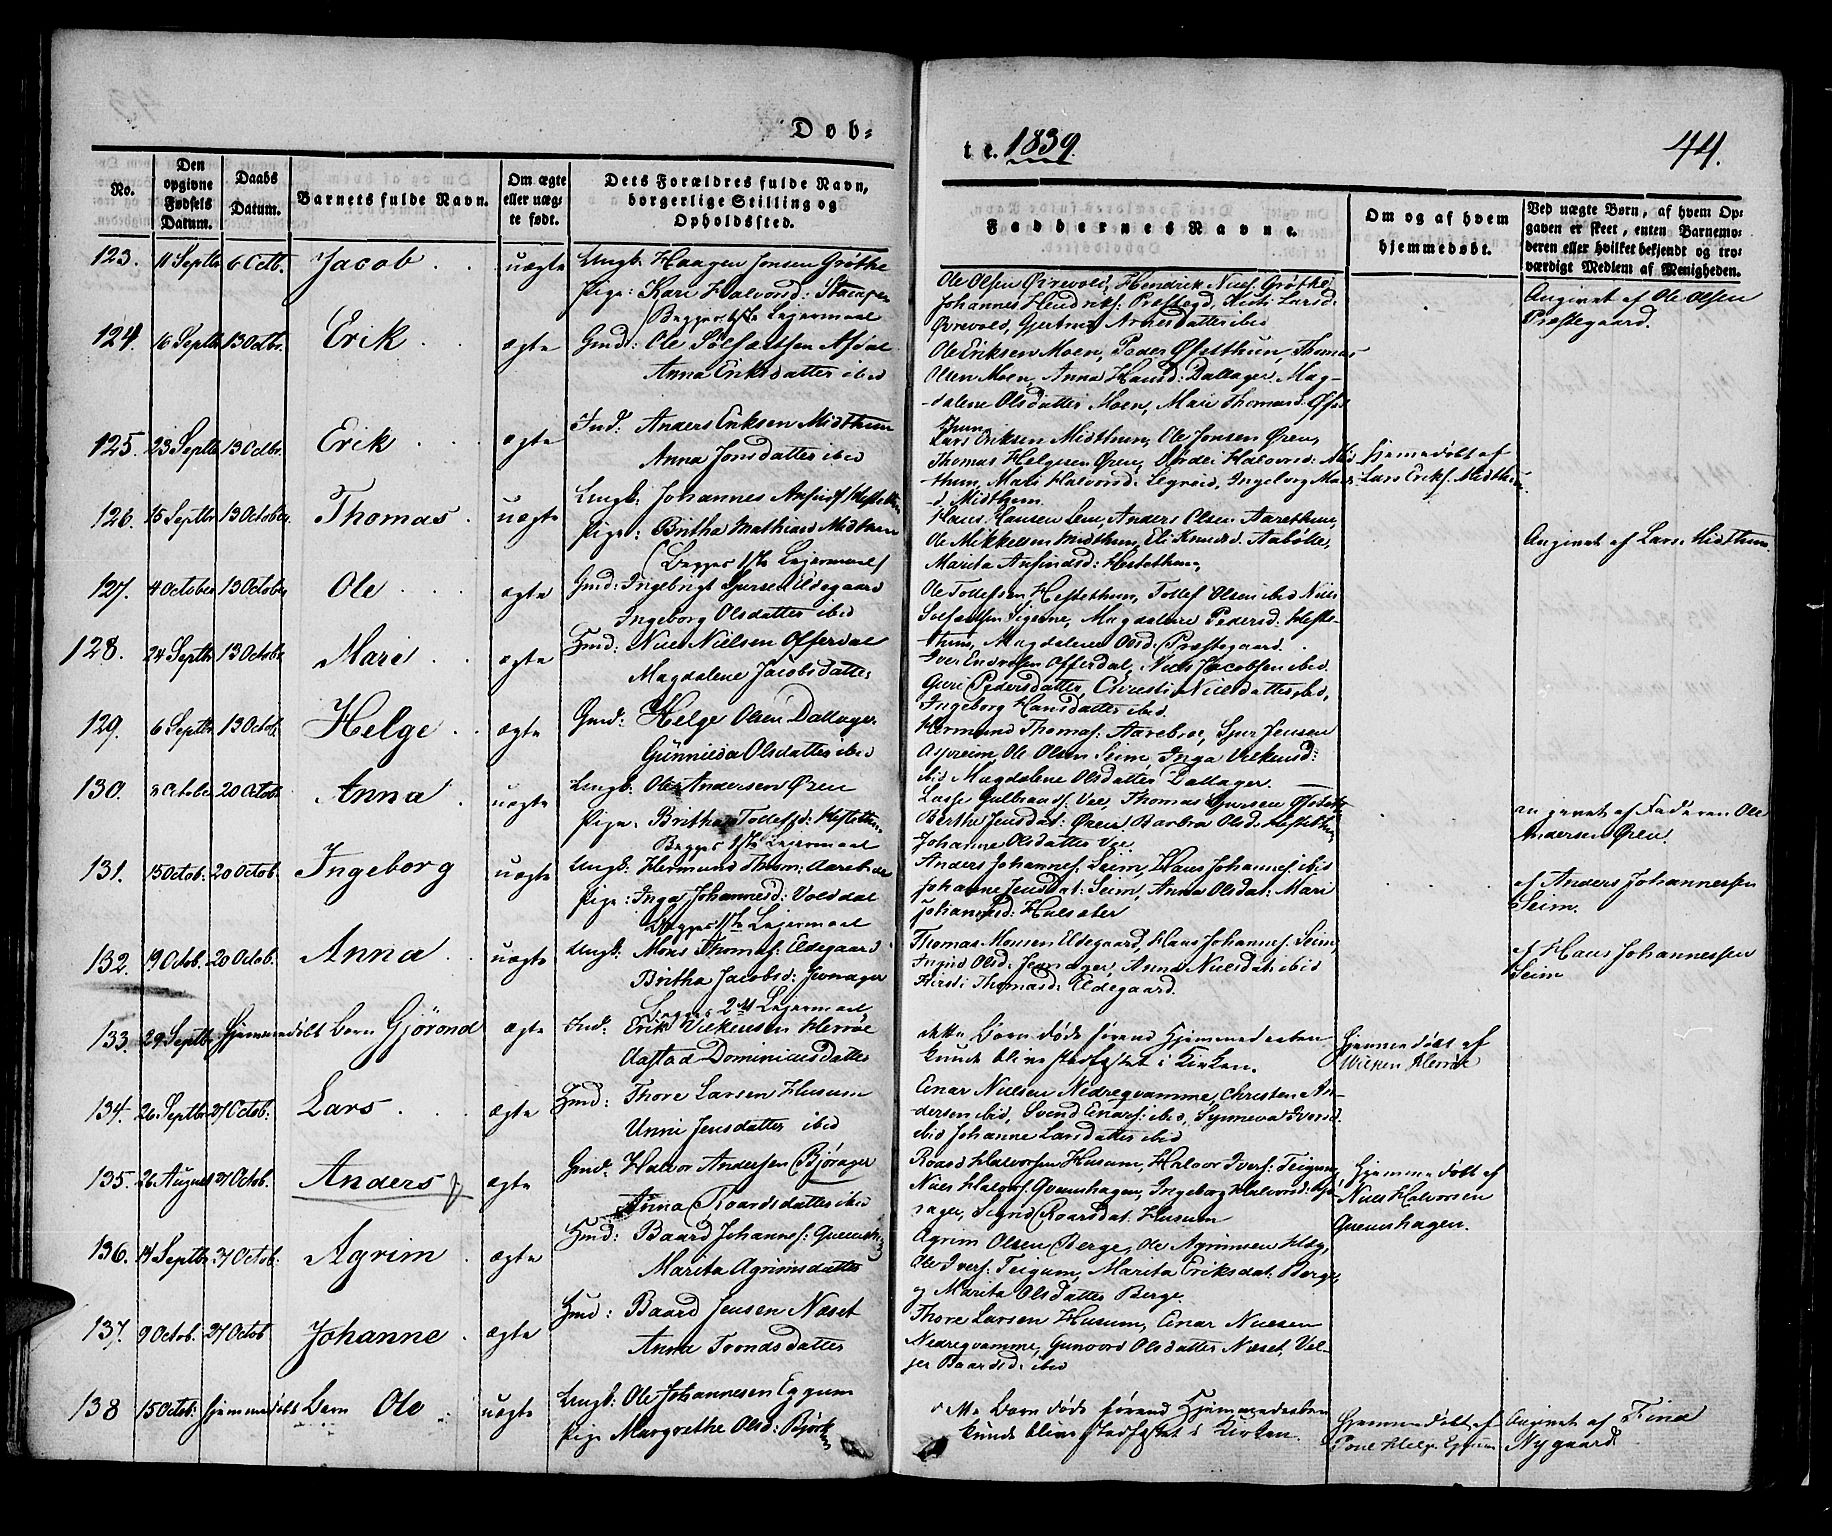 Døb-
te. 1839.
44.
No.
Den opgivne Fødsels Datum.
Daabs Datum.
Barnets fulde Navn.
Om ægte eller uægte født.
Dets Forældres fulde Navn, borgerlige Stilling og Opholdssted.
Faddernes Navne.
Om og af hvem hjemmedøbt.
Ved uægte Børn, af hvem Opgaven er skeet, enten Barnemoderen eller hvilket bekjendt og troværdigt Medlem af Menigheden.
123. 11 Septbr 6 Octb. Jacob uægte Ungk. Haagen Jonsen Grøthe
Pige: Kari Halvorsd:
Begges 1ste Lejermaal
Ole Olsen Øvrevold, Hendrik Niels: Grøthe,
Johannes Hendriks: Præstegd, Kisti Larsd:
Øvrevold, Gertrud Arnesdatter ibid
Angivet af Ole Olsen
Præstegaard.
124. 16 Septbr 13 Octbr. Erik ægte Gmd: Ole Solfæstsen Asdal
Anna Eriksdatter ibid
Ole Eriksen Moen, Peder Øfstthun, Thomas
Olsen Moen, Anna Hansd: Dallager. Mag-
dalene Olsdatter Moen, Mari Thomasd: Øfst
thun
125. 23 Septb 13 Octbr. Erik ægte Ind: Anders Eriksen Midthun
Anna Jonsdatter ibid
Lars Eriksen Midthun, Ole Jonsen Øren,
Thomas Helgesen Øren, Dordei Halvorsd: Mid
thun, Mari Halvorsd: Legreid, Ingeborg Mons:
d Midthun.
Hjemmedøbt af
Lars Eriks. Midthun.
126. 15 Septbr 13 October Thomas uægte Ungk: Johannes Ansinds: Hestethun
Pige: Britha Mathiasd Midthun
(Begges 1ste Lejermaal)
Hans Hansen Lem, Anders Olsen Aarethun,
Ole Mikkelsen Midthun, Eli Knudsd. Aabølle,
Marita Ansindsd: Hestethun,
Angivet af Lars Midthun.
127. 4 October 13 October Ole ægte Gmd: Ingebrigt Sjursen Eldegaard
Ingeborg Olsdatter ibid
Ole Tollefsen Hestethun, Tollef Olsen ibid Niels
Solfæstsen Sigerne, Magdalene Pedersd: Heste-
thun, Magdalene Olsd: Præstegaard.
128. 24 Septbr 13 Octobr Mari ægte Hmd: Niels Nielsen Offerdal
Magdalene Jacobsdatter
Iver Endresen Offerdal, Niels Jacobsen ibid.
Guri Pedersdatter, Christi Nielsdatter ibid,
Ingeborg Hansdatter ibid.
129. 6 Septbr 13 Octob. Helge ægte Gmd: Helge Olsen Dallager
Gunnilda Olsdatter ibid
Hermund Thomas: Aarebroe, Sjur Jensen
Asperim, Ole Olsen Seim, Inga Vilkensd:
ibid Magdalene Olsdatter Dallager.
130. October 20 Octob Anna uægte Ungk. Ole Andersen Øren
Pige. Britha Tollefsd: Hestethun
Begges 1ste Lejermaal
Lasse Gulbrands: Vee, Thomas Sjursen
Berthe Jensdat: Øren, Barbra Olsd. Hestethun,
Johanne Olsdatter Vee.
angivet af Faderen Ole
Andersen Øren.
131. 15 Octob. 20 Octob. Ingeborg uægte Ungk. Hermund Thom: Aarebroe
Pige: Inga Johannesd: Volddal
Begges 1ste Lejermaal
Anders Johannes: Seim, Hans Johannes: ibid
Johanne Jensdat: Seim, Anna Olsdat: Mari
Johannesd: Hulsæter
af Anders Johannessen
Seim.
132. 19 Octob. 20 Octob. Anna uægte Ungk. Mons Thomas: Eldegaard
Britha Jacobsd:
Begges 2det Lejermaal
Thomas Monsen Eldegaard, Hans Johannes: Seim,
Ingrid Olsd: Anna Nielsdat: ibid
Kirsti Thomasd: Eldegaard.
af Hans Johannessen
Seim
133. 29 Septbr Hjemmedøbt Barn Gjörond ægte Ind: Erik Vilkensen Herrøe
Aastad Dominicusdatter
dette Barn døde førend Hjemmedaaben
kunde blive stadfæstet i Kirken.
Hjemmedøbt af
Vilken Herrøe
134. 26 Septbr 27 Octob. Lars ægte Hmd: Thore Larsen Husum
Unni Jensdatter ibid
Einar Nielsen Nedreqvamme, Christen An-
dersen ibid, Svend Einars: ibid, Synneva Iversd:
ibid Johanne Larsdatter ibid
135. 26 August 27 Octob. Anders ægte Gmd. Halvor Andersen Bjørager
Anna Roardsdatter ibid
Roard Halvorsen Husum, Halvor Ivers: Teigum,
Niels Halvors: Qvenshagen, Ingeborg Halvorsd: Bjø
rager, Sigrid Roarsdat: Husum
Hjemmedøbt af
Niels Halvorsen
Quenshagen.
136. 14 Septbr 27 Octob. Agrim ægte Hmd: Baard Johannes:
Marita Agrimsdatter
Agrim Olsen Berge, Ole Agrimsen Hæg,
Ole Ivers: Teigum, Marita Eriksdat: Berge,
og Marita Olsdatter Berge.
137. 9 Octob. 27 Octob Johanne ægte Hmd: Baard Jensen Næset
Anna Trondsdatter
Thore Larsen Husum, Einar Nielsen
Nedreqvamme, Gunvord Olsdatter Næset, Vel-
jer Baardsd: ibid
138 15 Octob: hjemmedøbt Barn Ole uægte Ungk: Ole Johannesen Eggum
Pige Margrethe Olsd: Bjørk
dette Barn døde førend Hjemmedaaben
kunde blive stadfæstet i Kirken.
Hjemmedøbt af
Poul Helge. Eggum
Angivet af Find
Nygaard